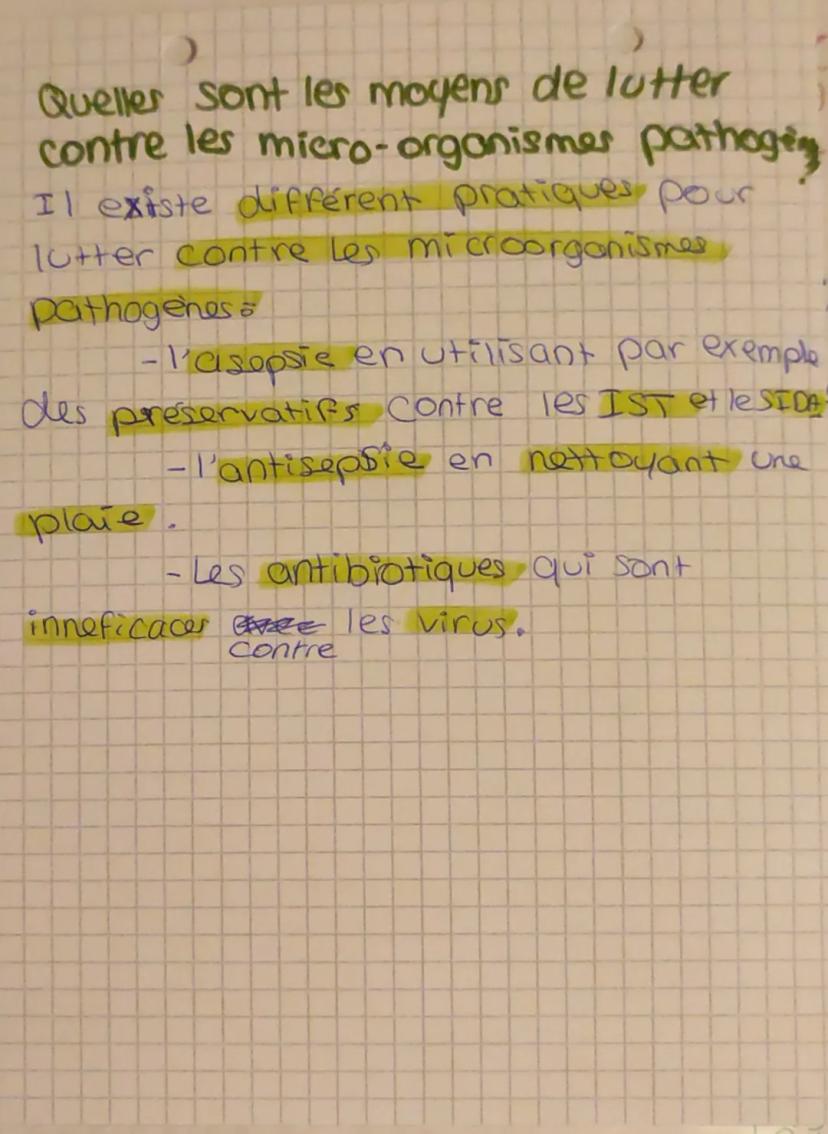 Quelles sont les moyens de lutter
contre les micro-organismes pathogèn
?
Il existe différent pratiques pour
lutter contre les microorganismes
pathogènes:
-l'asepsie en utilisant par exemple
des préservatifs contre les IST et le SIDA
-l'antisepsie en nettoyant une
plaie.
-Les antibiotiques qui sont
inneficaces les virus.
contre